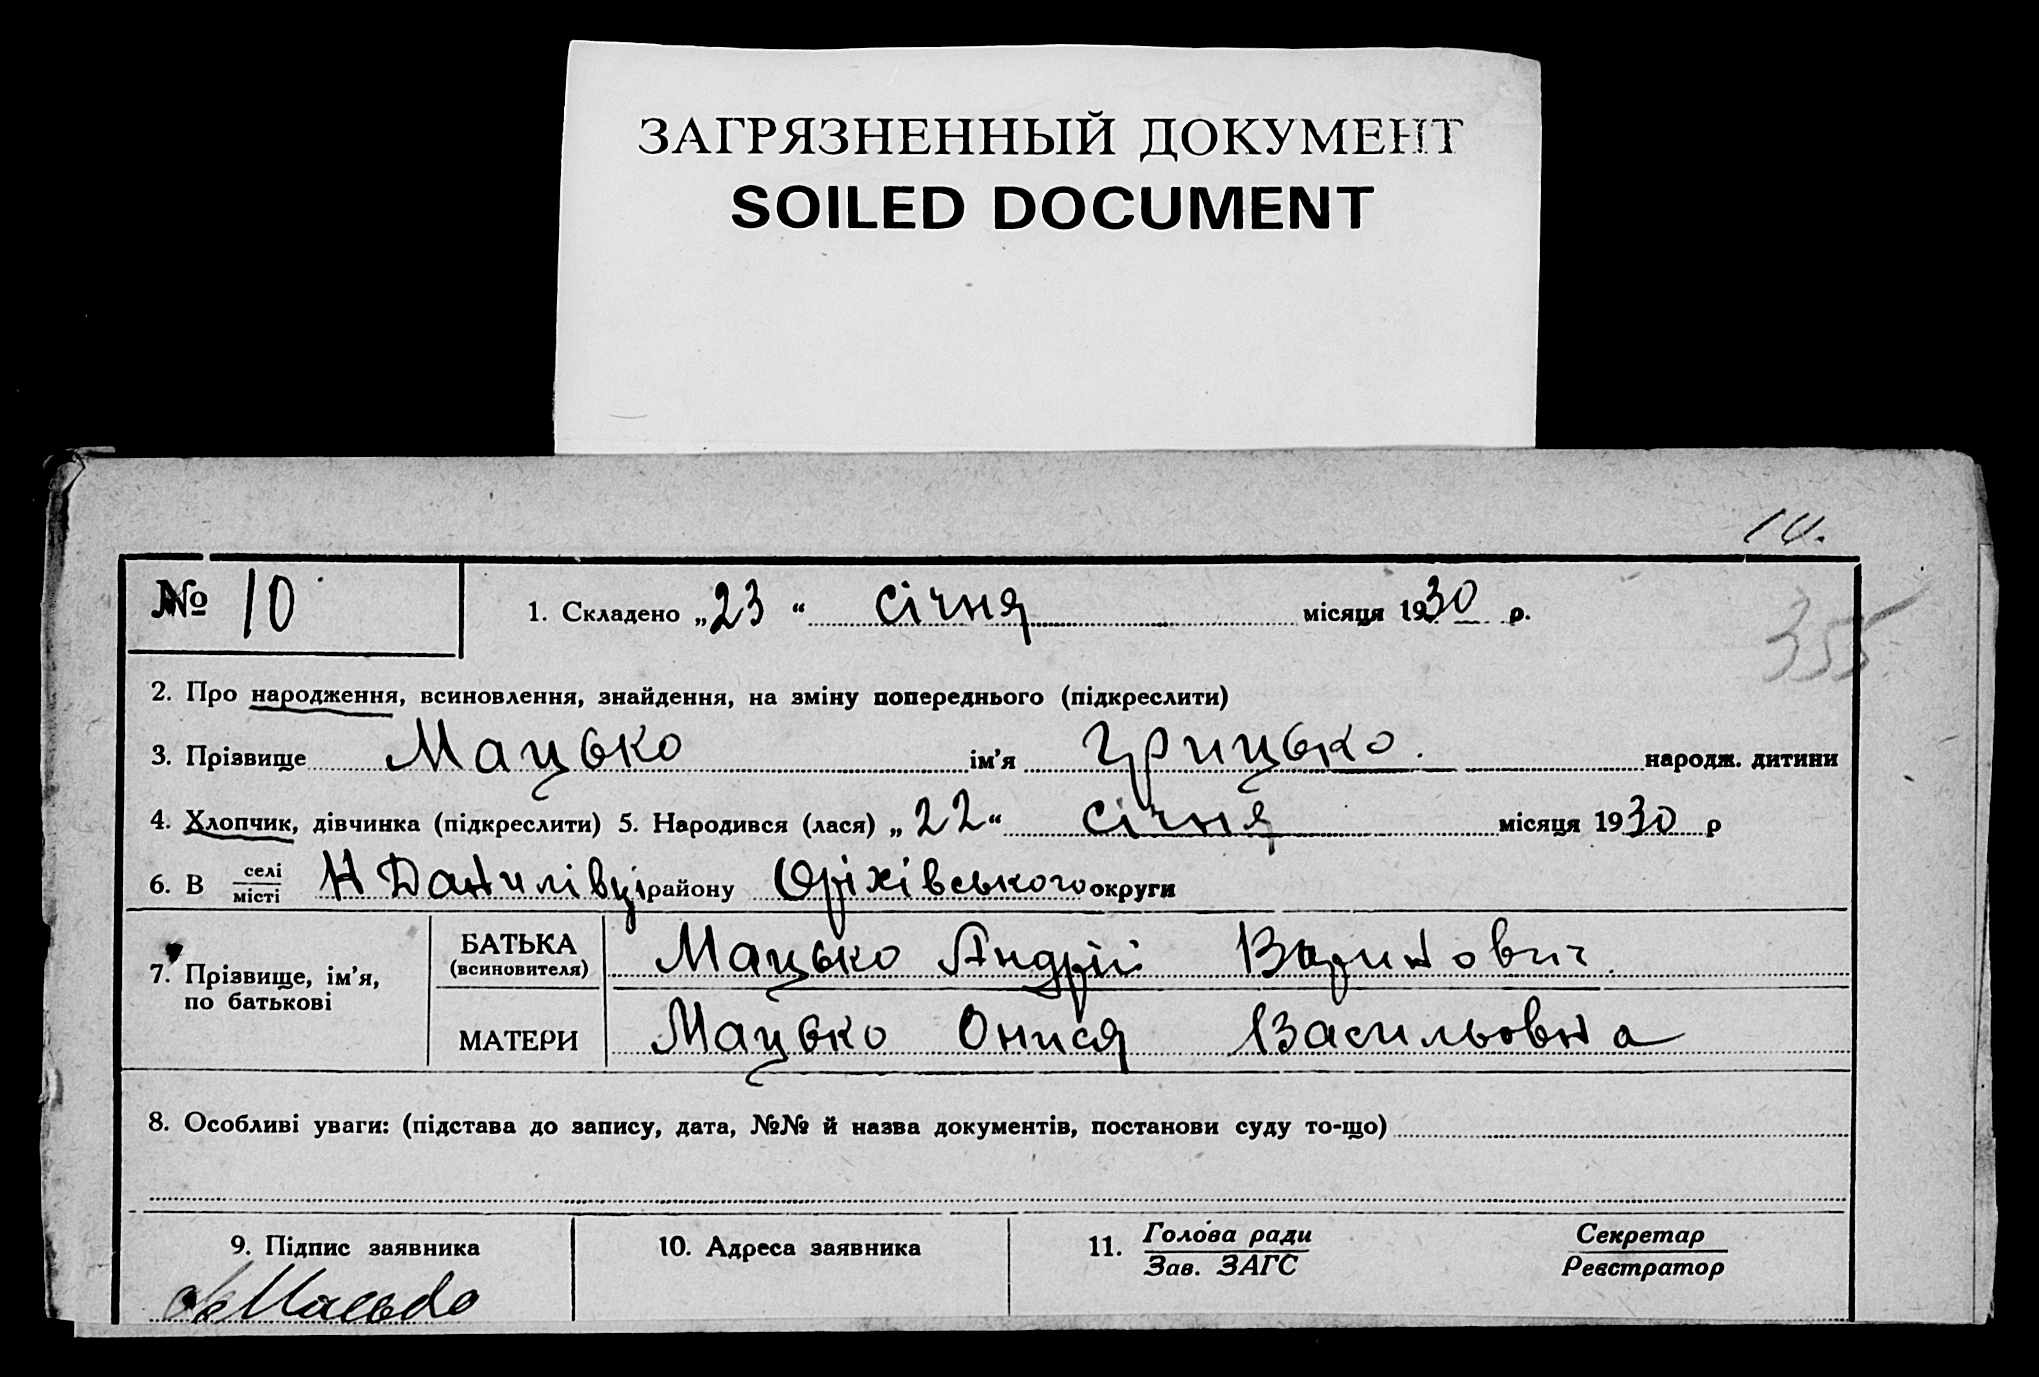 ЗАГРЯЗНЕННЫЙ ДОКУМЕНТ
SOILED DOCUMENT
10.
№ 10
1. Складено „23“ січня місяця 1930 р.
355
2. Про народження, всиновлення, знайдення, на зміну попереднього (підкреслити)
3. Прізвище Мацько ім’я Грицько. народж. дитини
4. Хлопчик, дівчинка (підкреслити) 5. Народився (лася) „22“ січня місяця 1930 р
6. В селі/місті Н Данилівці району Оріхівського округи
7. Прізвище, ім’я, по батькові
БАТЬКА (всиновителя) Мацько Андрій
МАТЕРИ Мацько Онися Васильовна
8. Особливі уваги: (підстава до запису, дата, №№ й назва документів, постанови суду то-що)
9. Підпис заявника
10. Адреса заявника
11. Голова ради Секретар
Зав. ЗАГС Реєстратор